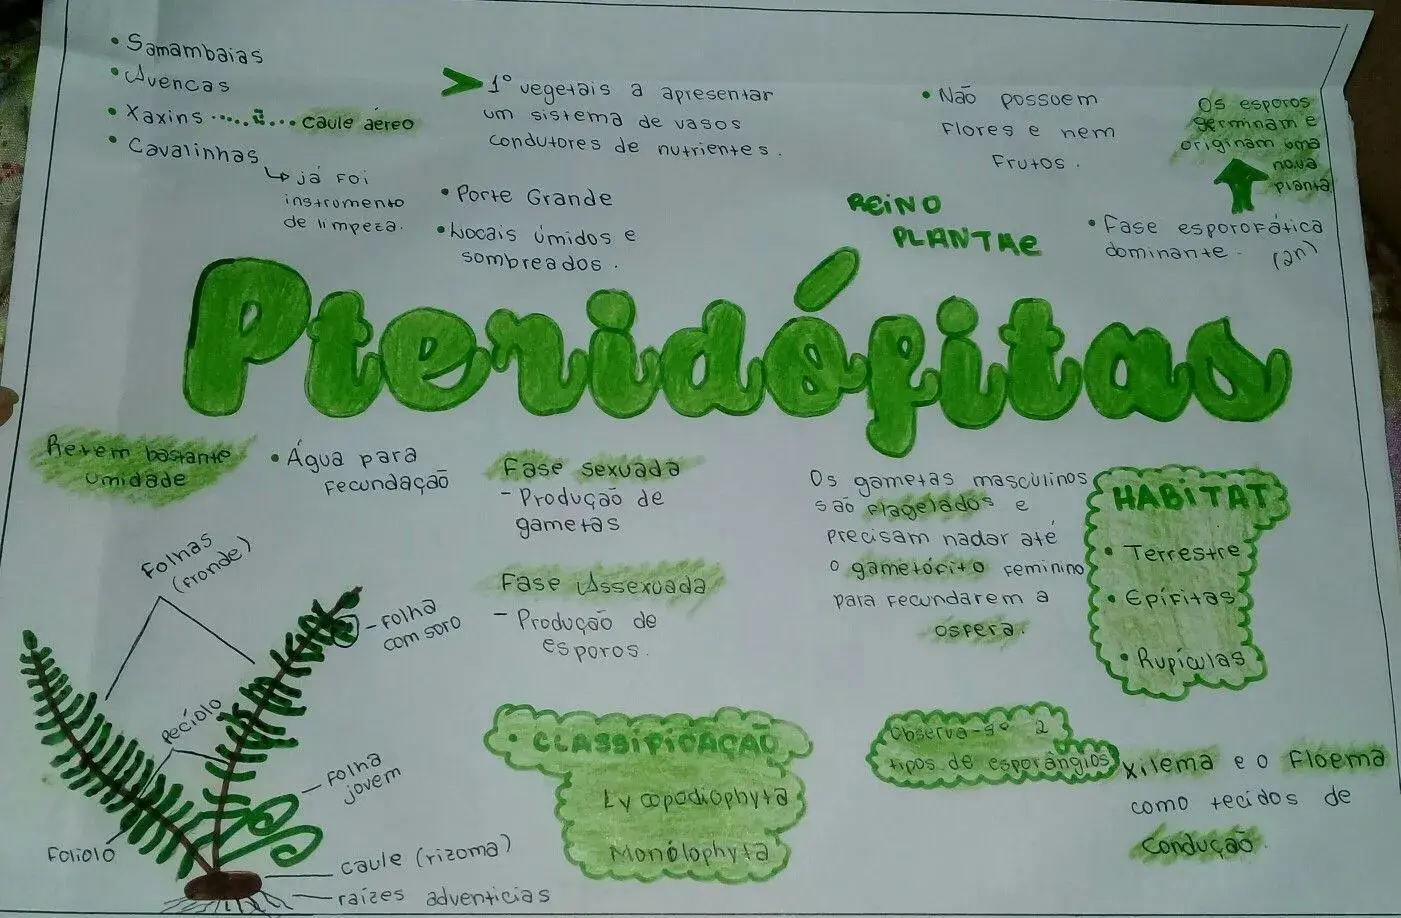 • Samambaias
• Avencas
• Xaxins ........ caule aéreo
• Cavalinhas
↳ já foi
instrumento
de limpeza.
➤ 1º vegetais a apresentar
um sistema de vasos
condutores de nutrientes.
• Porte Grande
• Locais úmidos e
sombreados.
• Não possuem
flores e nem
frutos.
Os esporos
germinam e
originam uma
nova
planta
REINO
PLANTAE
• Fase esporofática
dominante. (2n)
Pteridófitas
Retem bastante
umidade
• Água para
fecundação
Fase sexuada
- Produção de
gametas
Fase Assexuada
- Produção de
esporos.
Os gametas masculinos
são flagelados e
precisam nadar até
o gametófito feminino
para fecundarem a
osfera.
HABITAT
• Terrestre
• Epífitas
• Rupículas
Folhas
(fronde)
- Folha
com soro
Pecíolo
Folha
jovem
Foliolo
caule (rizoma)
raízes adventicias
• CLASSIFICAÇÃO
Lycopodiophyta
Monólophyta
Observa-se 2
tipos de esporângios
Xilema e o Floema
como tecidos de
condução.